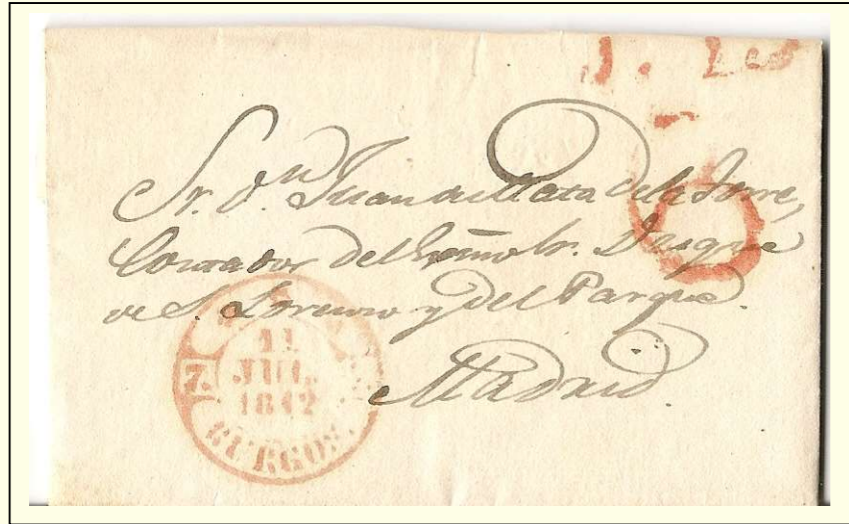 Sr. dn. Juan de Mata de la Torre,
Contador del Exmo Sr. Duque
de S. Lorenzo y del Parque.
Madrid.
7.
11
JUL.
1842
BURGOS.